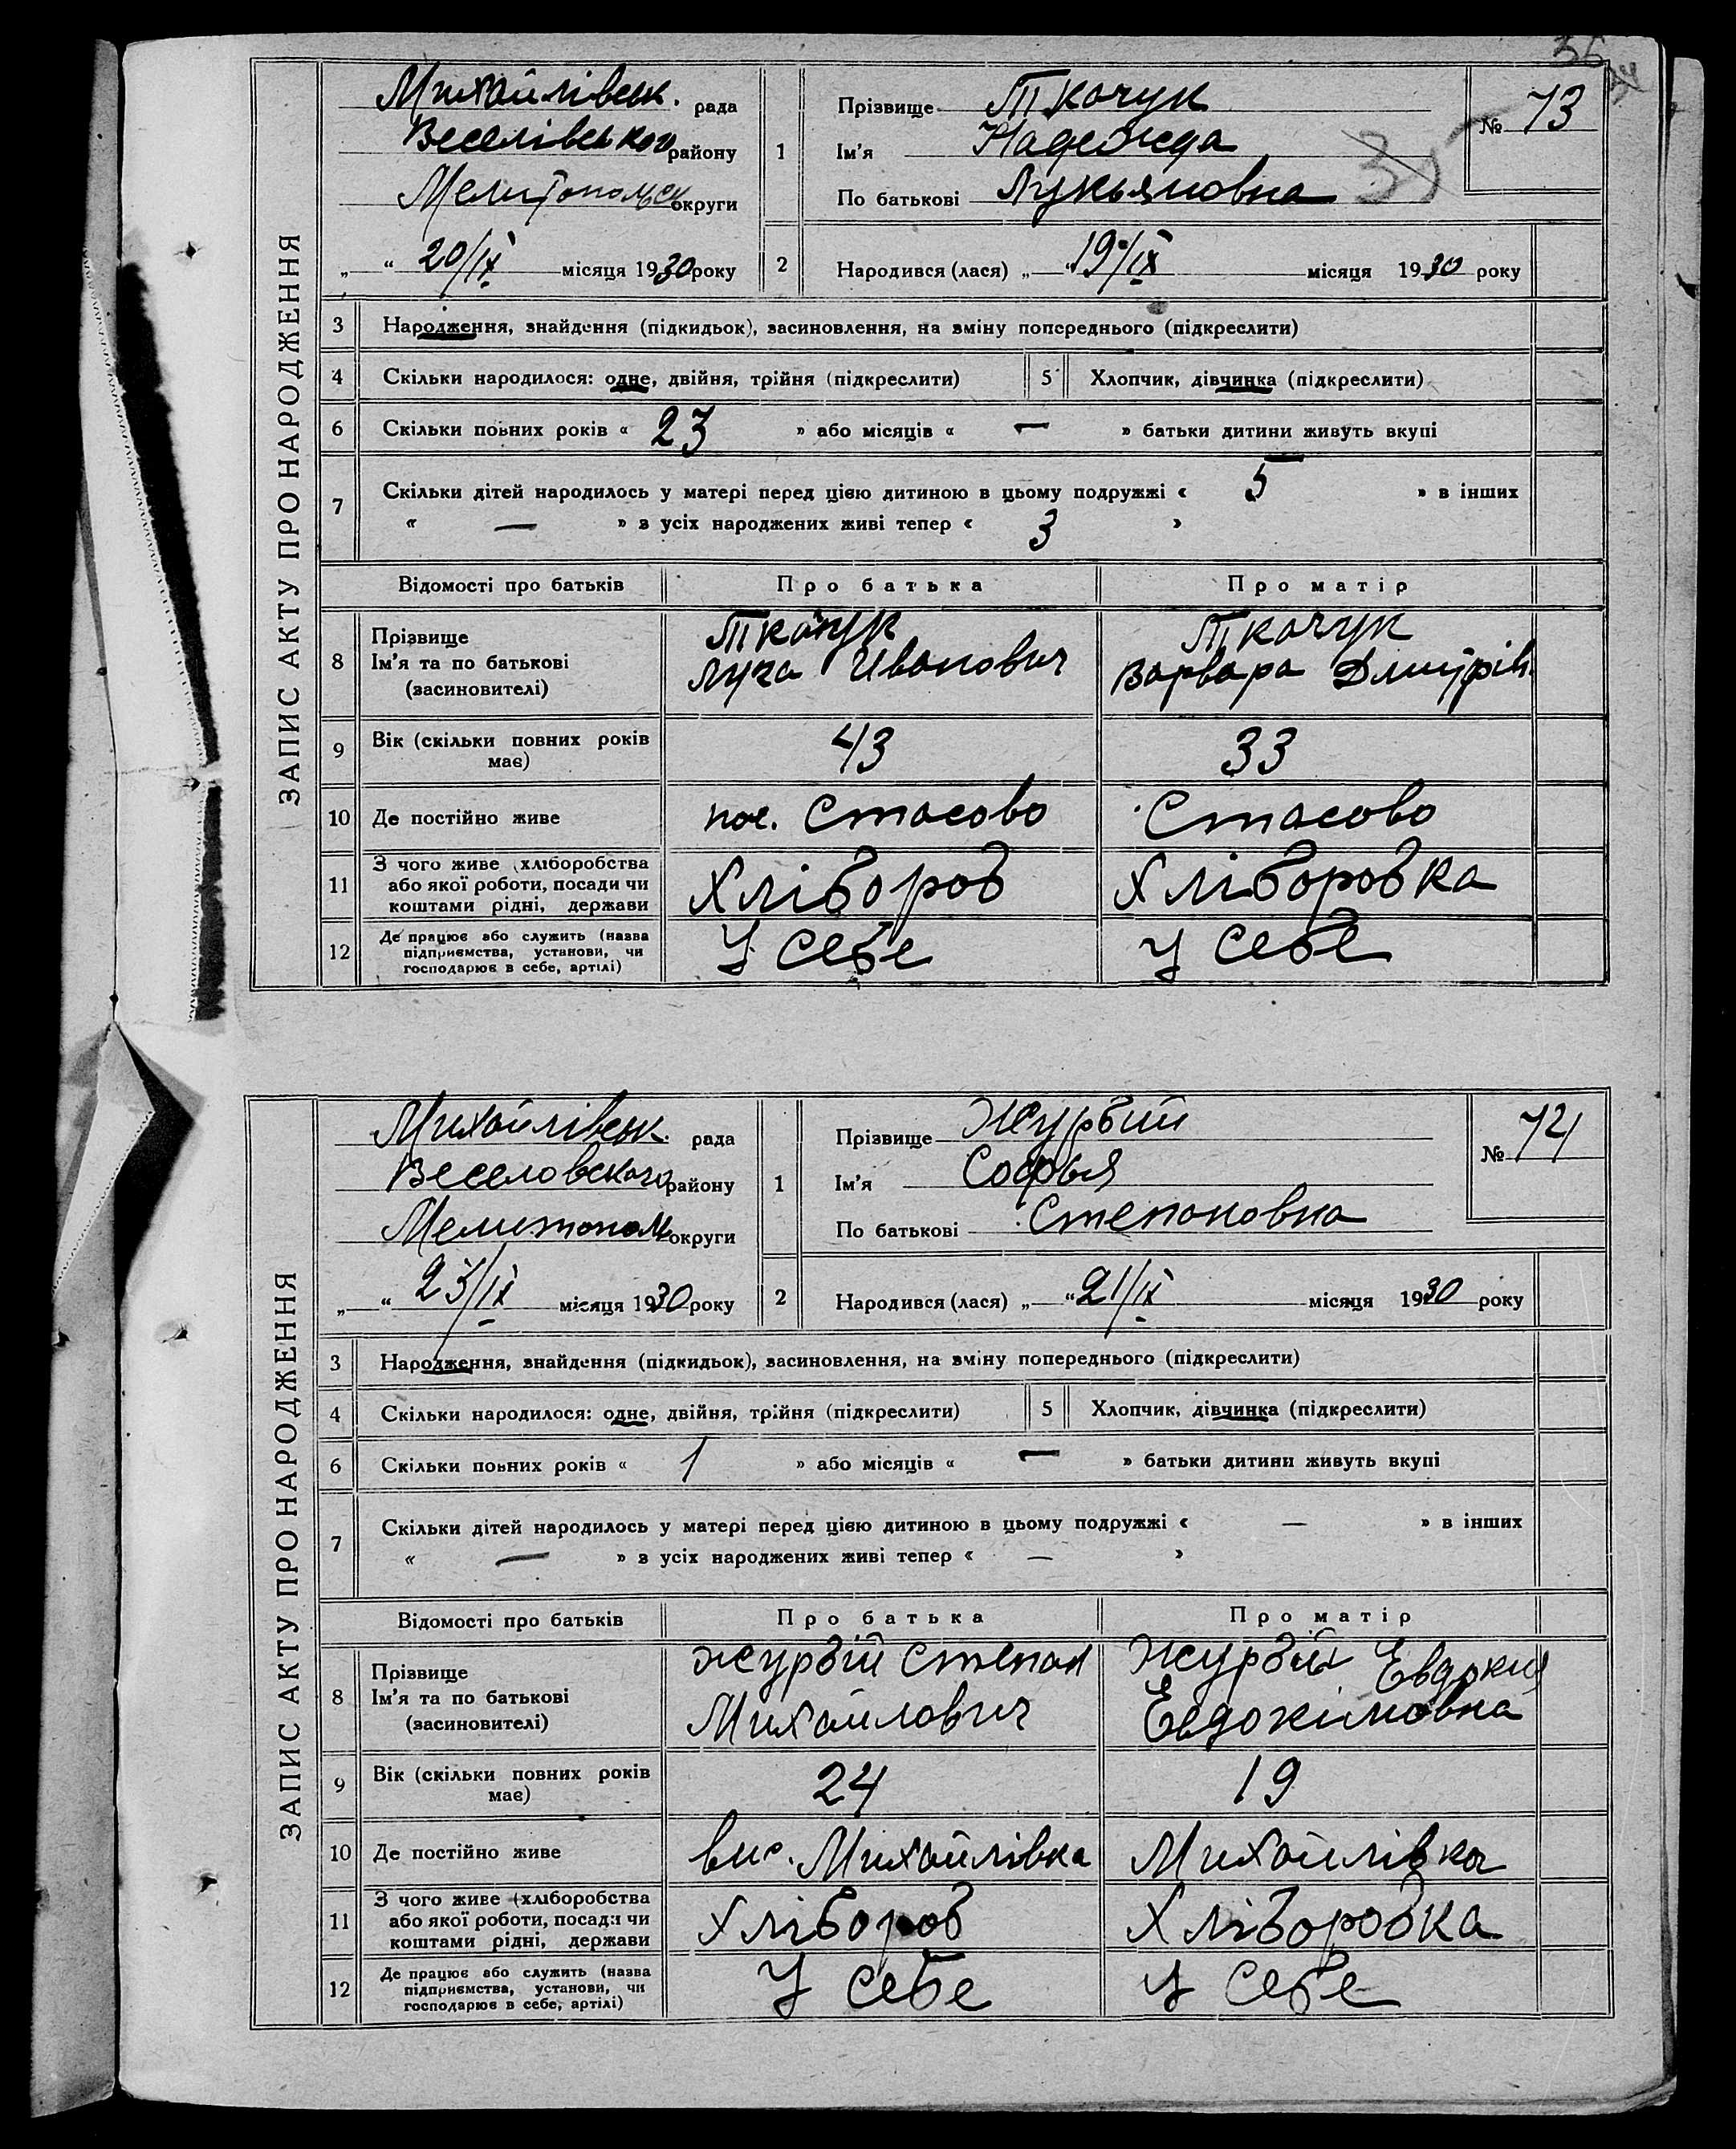 35
ЗАПИС АКТУ ПРО НАРОДЖЕННЯ
Михайлівськ. рада
Веселівського району
Мелитопольск округи
„ “ 20/IX місяця 1930 року
1 Прізвище Ткачук
Ім'я Надежда
По батькові Лукьяновна
35
№ 73
2 Народився (лася) „ “ 19/IX місяця 1930 року
3 Народження, знайдення (підкидьок), засиновлення, на зміну попереднього (підкреслити)
4 Скільки народилося: одне, двійня, трійня (підкреслити) 5 Хлопчик, дівчинка (підкреслити)
6 Скільки повних років « 23 » або місяців « — » батьки дитини живуть вкупі
7 Скільки дітей народилось у матері перед цією дитиною в цьому подружжі « 5 » в інших
« — » з усіх народжених живі тепер « 3 »
Відомості про батьків Про батька Про матір
8 Прізвище Ім'я та по батькові (засиновителі) Ткачук Ткачук
Лука Иванович Варвара Дмитрів.
9 Вік (скільки повних років має) 43 33
10 Де постійно живе пос. Стасово Стасово
11 З чого живе (хліборобства або якої роботи, посади чи коштами рідні, держави Хлібороб Хлібороб ка
12 Де працює або служить (назва підприємства, установи, чи господарює в себе, артілі) У себе У себе
ЗАПИС АКТУ ПРО НАРОДЖЕННЯ
Михайлівськ. рада
Веселовского району
Мелитопол округи
„ “ 23/IX місяця 1930 року
1 Прізвище Журбий
Ім'я Софья
По батькові Степановна
№ 74
2 Народився (лася) „ “ 21/IX місяця 1930 року
3 Народження, знайдення (підкидьок), засиновлення, на зміну попереднього (підкреслити)
4 Скільки народилося: одне, двійня, трійня (підкреслити) 5 Хлопчик, дівчинка (підкреслити)
6 Скільки повних років « 1 » або місяців « — » батьки дитини живуть вкупі
7 Скільки дітей народилось у матері перед цією дитиною в цьому подружжі « — » в інших
« — » з усіх народжених живі тепер « — »
Відомості про батьків Про батька Про матір
8 Прізвище Ім'я та по батькові (засиновителі) Журбій Степан Журбій Евдокия
Михайлович Евдокимовна
9 Вік (скільки повних років має) 24 19
10 Де постійно живе вис. Михайлівка Михайлівка
11 З чого живе (хліборобства або якої роботи, посади чи коштами рідні, держави Хлібороб Хліборобка
12 Де працює або служить (назва підприємства, установи, чи господарює в себе, артілі) У себе У себе